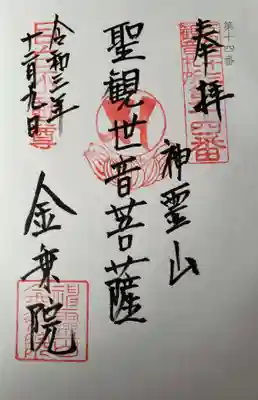 第十四番
奉拝
神霊山
聖観世音菩薩
令和三年
十二月九日
金乗院